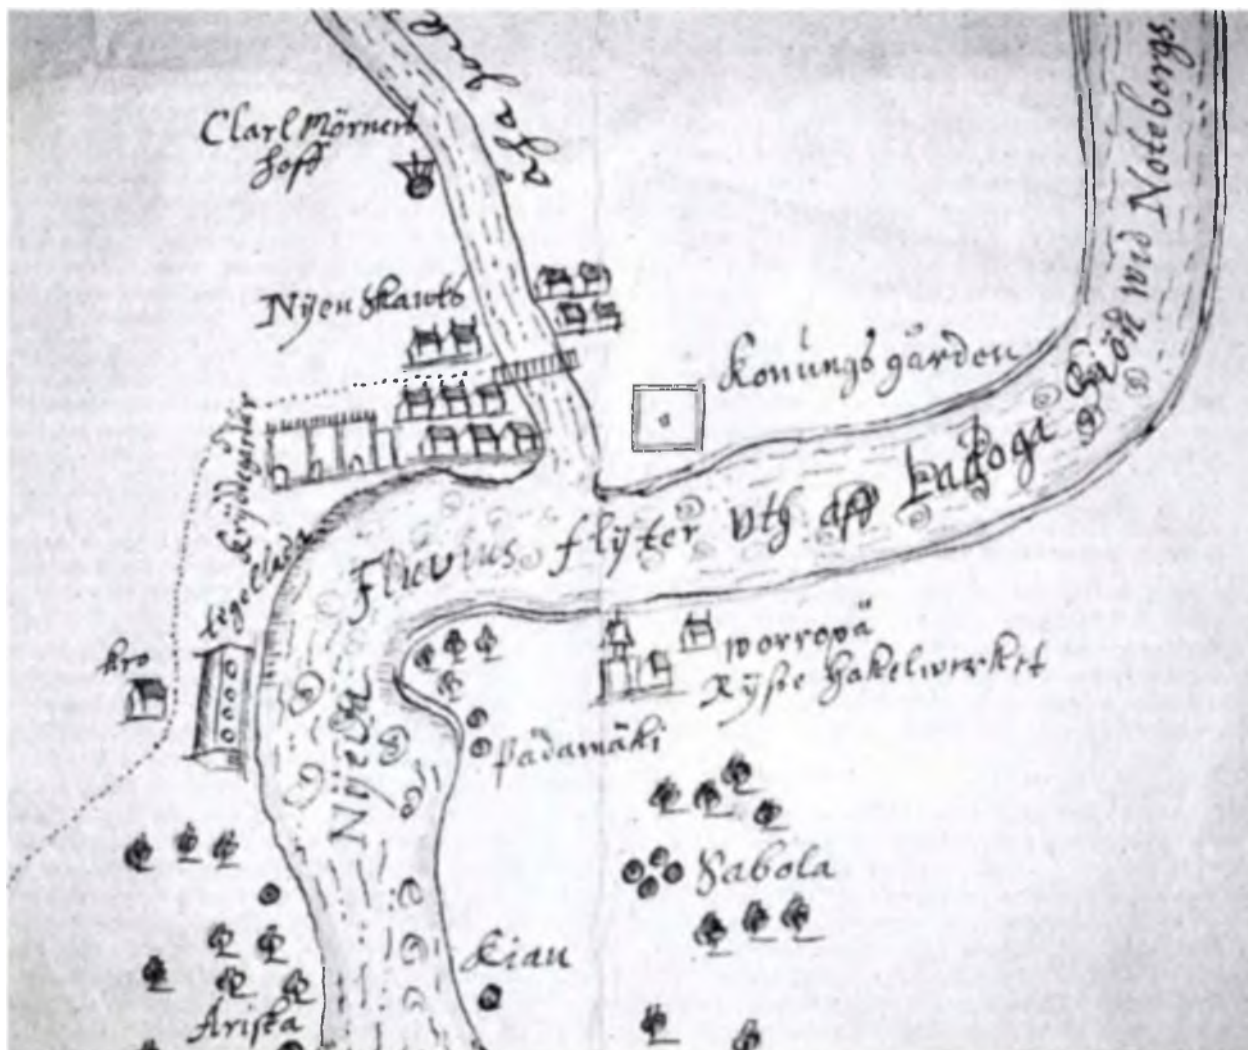 Clarl Mörners
hoff
Nÿen Skants
Konungs gården
Krÿdegårdar
tegelladu
kro
Nÿeva Fluvius flÿter vth aff Ladoga Siön wid Noteborgs
worropä
Rÿsse Hakelwerket
Pädamäki
Sabola
Kiau
Arista